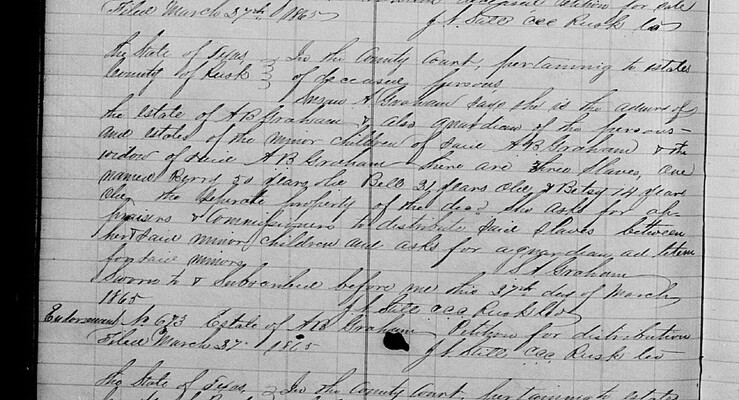 Petition for sale
Filed March 27th 1865 J. N. Still CCC Rusk Co
The State of Texas } In the County Court, pertaining to estates
County of Rusk } of deceased persons
Susan A Graham says she is the admrx of
the estate of A B Graham & also guardian of the persons
and estates of the minor children of said A B Graham & the
widow of said A B Graham there are three slaves, one
named Berry 50 years old Bell 31 years old & Betsy 14 years
old, the separate property of the decd. She asks for ap-
praisers & commissioners to distribute said slaves between
her & said minor children and asks for a guardian ad litem
for said minors S A Graham
Sworn to & Subscribed before me this 27th day of March
1865 CCC Rusk Co
Endorsement No 673 Estate of A B Graham Petition for distribution
Filed March 27 1865 CCC Rusk Co
The State of Texas, } In the County Court, pertaining to estates